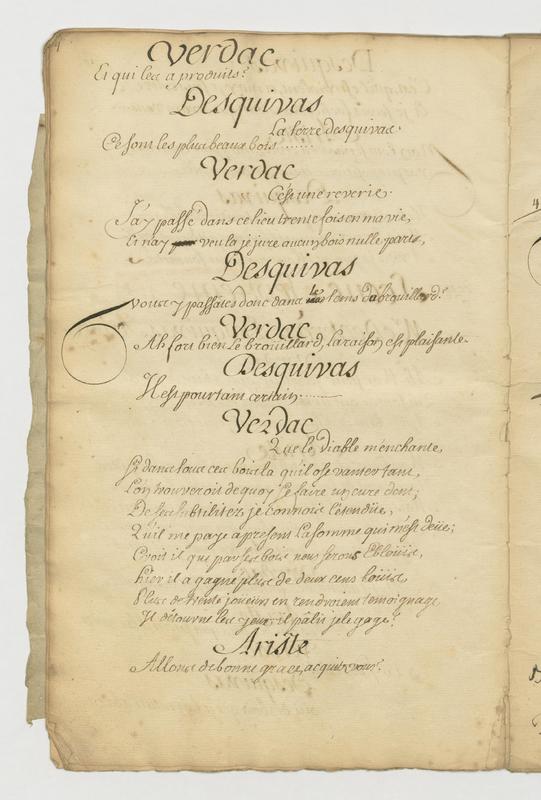 Verdac
Et qui les a produits?
Desquivas
La terre desquivas.
Ce sont les plus beaux bois ........
Verdac
C'est une reverie.
J'ay passé dans ce lieu trente fois en ma vie,
Et n'ay veu la je jure aucun bois nulle parts,
Desquivas
vous y passates donc dans le tems da brouillard?
Verdac
Ah fort bien Le broüillard, La raison est plaisante.
Desquivas
Il est pourtant certain ........
Verdac
Que le Diable m'enchante,
Si dans tous ces bois la qu'il ose vanter tant,
L'on trouveroit de quoy se faire un cure dent;
De ses subtilitez je connois l'étendüe,
Qu'il me paye a present La somme qui m'est deüe;
Croit il que par ses bois nous serons Eblöuis,
hier il a gagné plus de deux cens loüis,
Plus de trente joueurs en rendroient temoignage
Il détourne les yeux, il pâlit je le gage?
Ariste
Allons de bonne grace, acquitez vous?